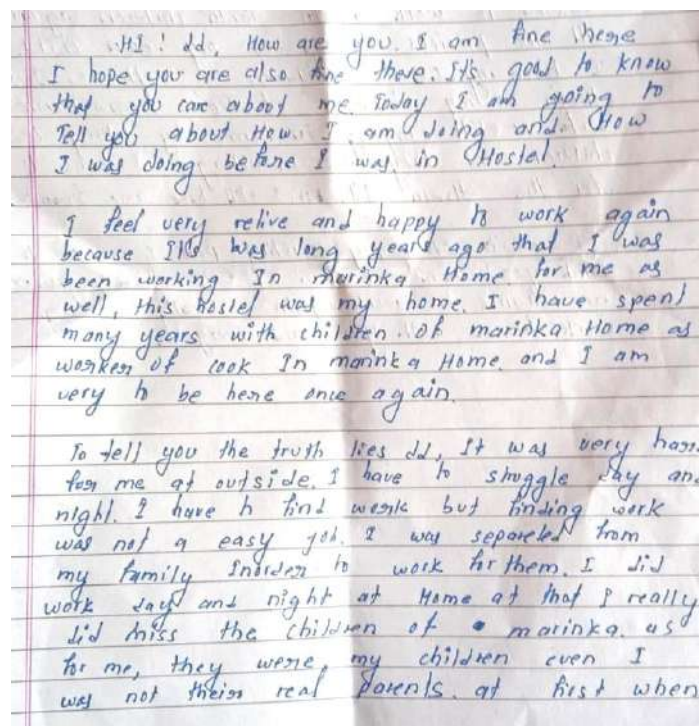 HI! dd, How are you. I am fine here
I hope you are also fine there. It's good to know
that you care about me. Today I am going to
Tell you about How I am doing and How
I was doing before I was in Hostel.
I feel very relive and happy to work again
because It's was long years ago that I was
been working In marinka Home. for me as
well, this hostel was my home. I have spent
many years with children of marinka Home as
worker of cook In marinka Home and I am
very to be here once again.
To tell you the truth lies dd, It was very hard
for me at outside. I have to struggle day and
night. I have to find work but finding work
was not a easy job. I was separeted from
my family Inorder to work for them. I did
work day and night at Home at that I really
did miss the children of marinka. as
for me, they were my children even I
was not their real parents. at first when